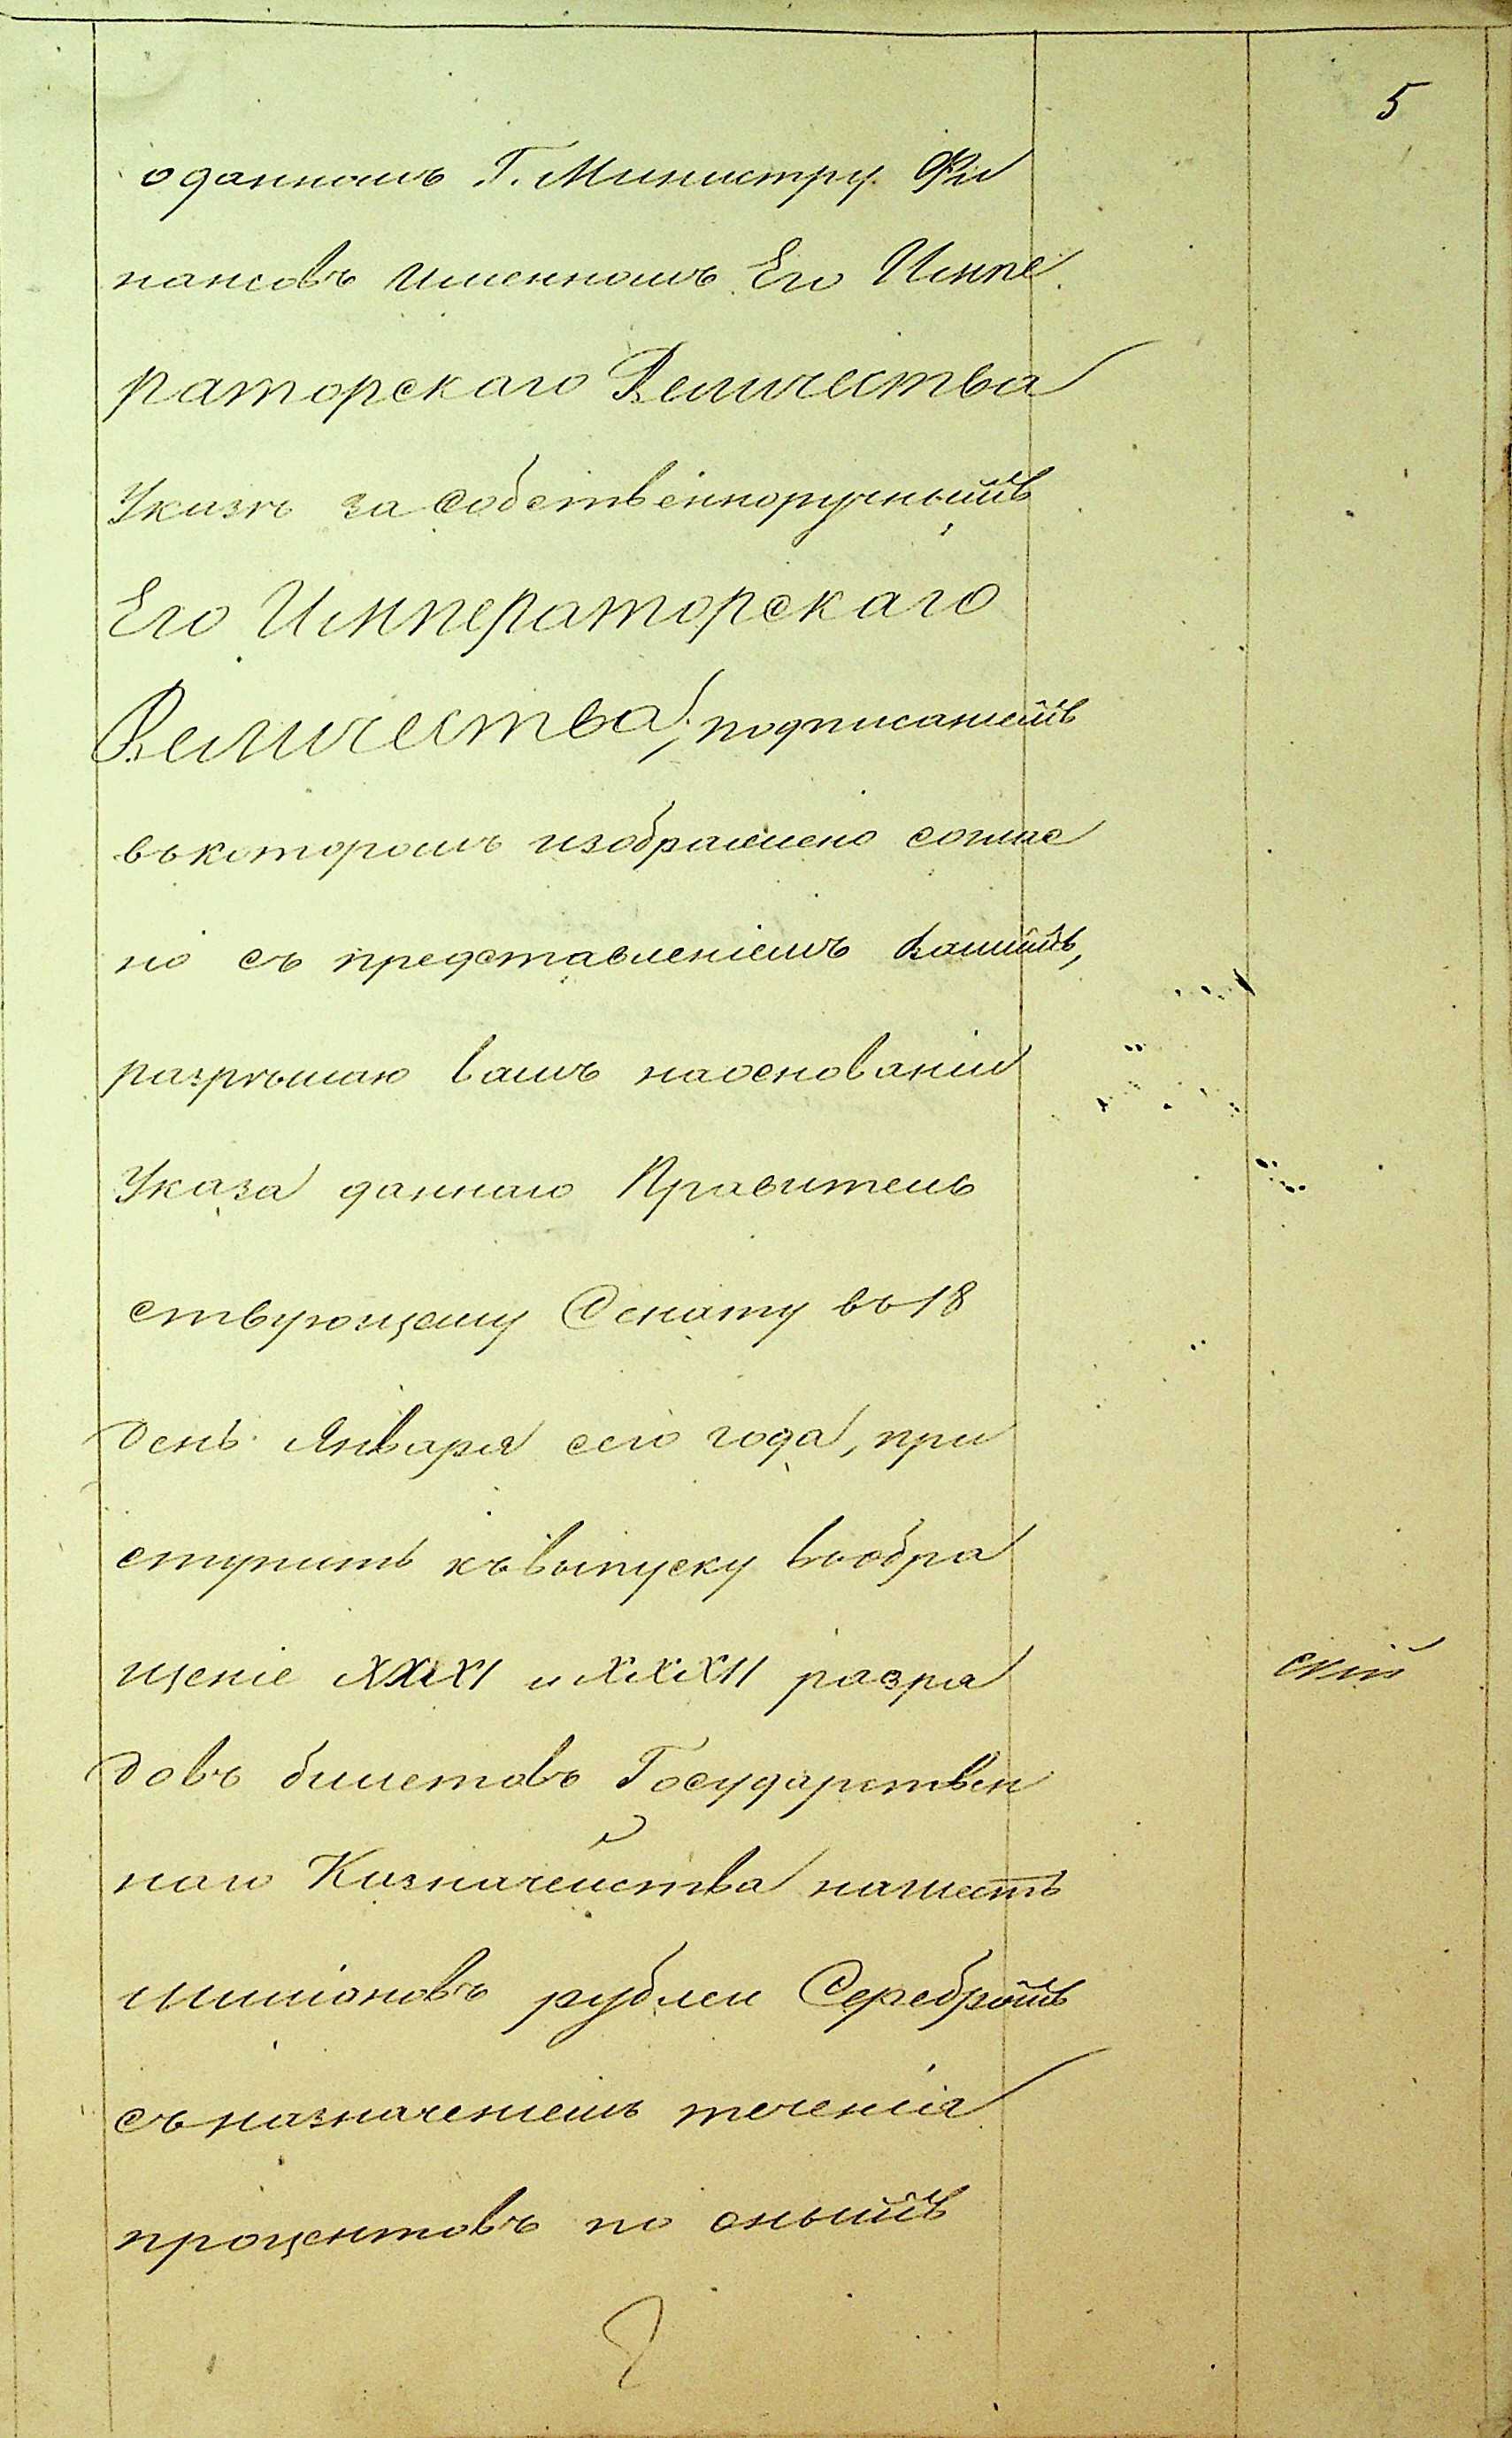 5
о данномъ Г. Министру Фи
нансовъ именномъ Его Импе
раторскаго Величества
Указѣ за собственноручнымъ
Его Императорскаго
Величества, подписаніемъ
въ которомъ изображено соглас
но съ представленіемъ Вашимъ,
разрѣшаю вамъ на основаніи
Указа даннаго Правитель
ствующему Сенату въ 18
день Января сего года, при
ступить къ выпуску въ обра
щеніе XXXI и XXXII разря
довъ билетовъ Государствен
наго Казначейства на шесть
милліоновъ рублей Серебромъ
съ назначеніемъ теченія
процентовъ по онымъ
скій